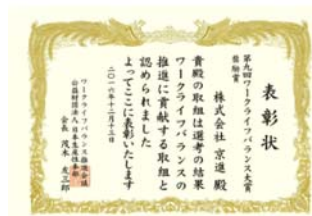 表彰状
第九回ワークライフバランス大賞
奨励賞
株式会社 京進 殿
貴殿の取組は選考の結果
ワークライフバランスの
推進に貢献する取組と
認められました
よってここに表彰いたします
二〇一六年十二月十三日
ワークライフバランス推進会議
公益財団法人 日本生産性本部
会長 茂木 友三郎